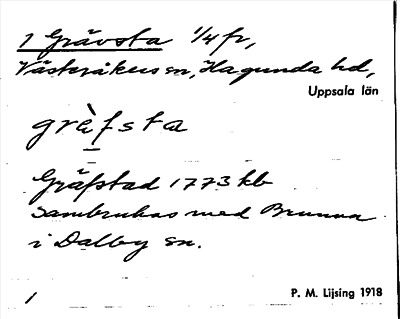 1 Grävsta 1/4 fr,
Västeråkers sn, Hagunda hd,
Uppsala län
grèfsta
Gräfstad 1773 kb
Sambrukas med Brunna
i Dalby sn.
1
P. M. Lijsing 1918